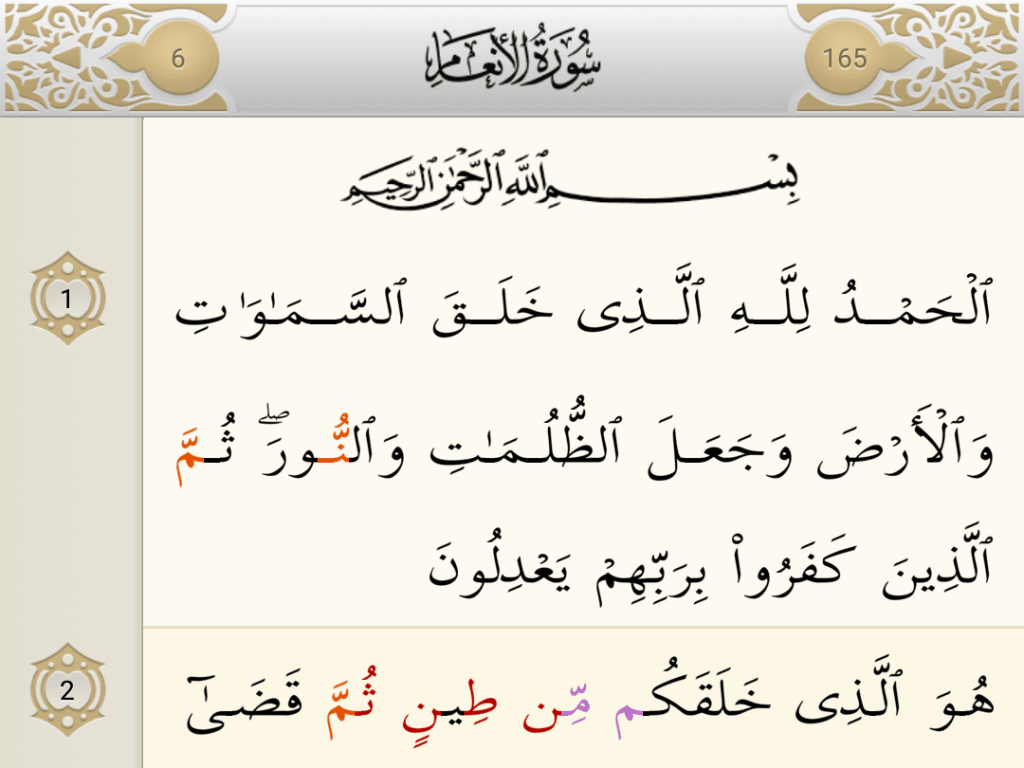 6 سُورَةُ الأَنْعَام 165
بِسْمِ اللَّهِ الرَّحْمَٰنِ الرَّحِيمِ
1
ٱلْحَمْدُ لِلَّهِ ٱلَّذِى خَلَقَ ٱلسَّمَـٰوَٰتِ
وَٱلْأَرْضَ وَجَعَلَ ٱلظُّلُمَـٰتِ وَٱلنُّورَ ۖ ثُمَّ
ٱلَّذِينَ كَفَرُوا۟ بِرَبِّهِمْ يَعْدِلُونَ
2
هُوَ ٱلَّذِى خَلَقَكُم مِّن طِينٍ ثُمَّ قَضَىٰٓ